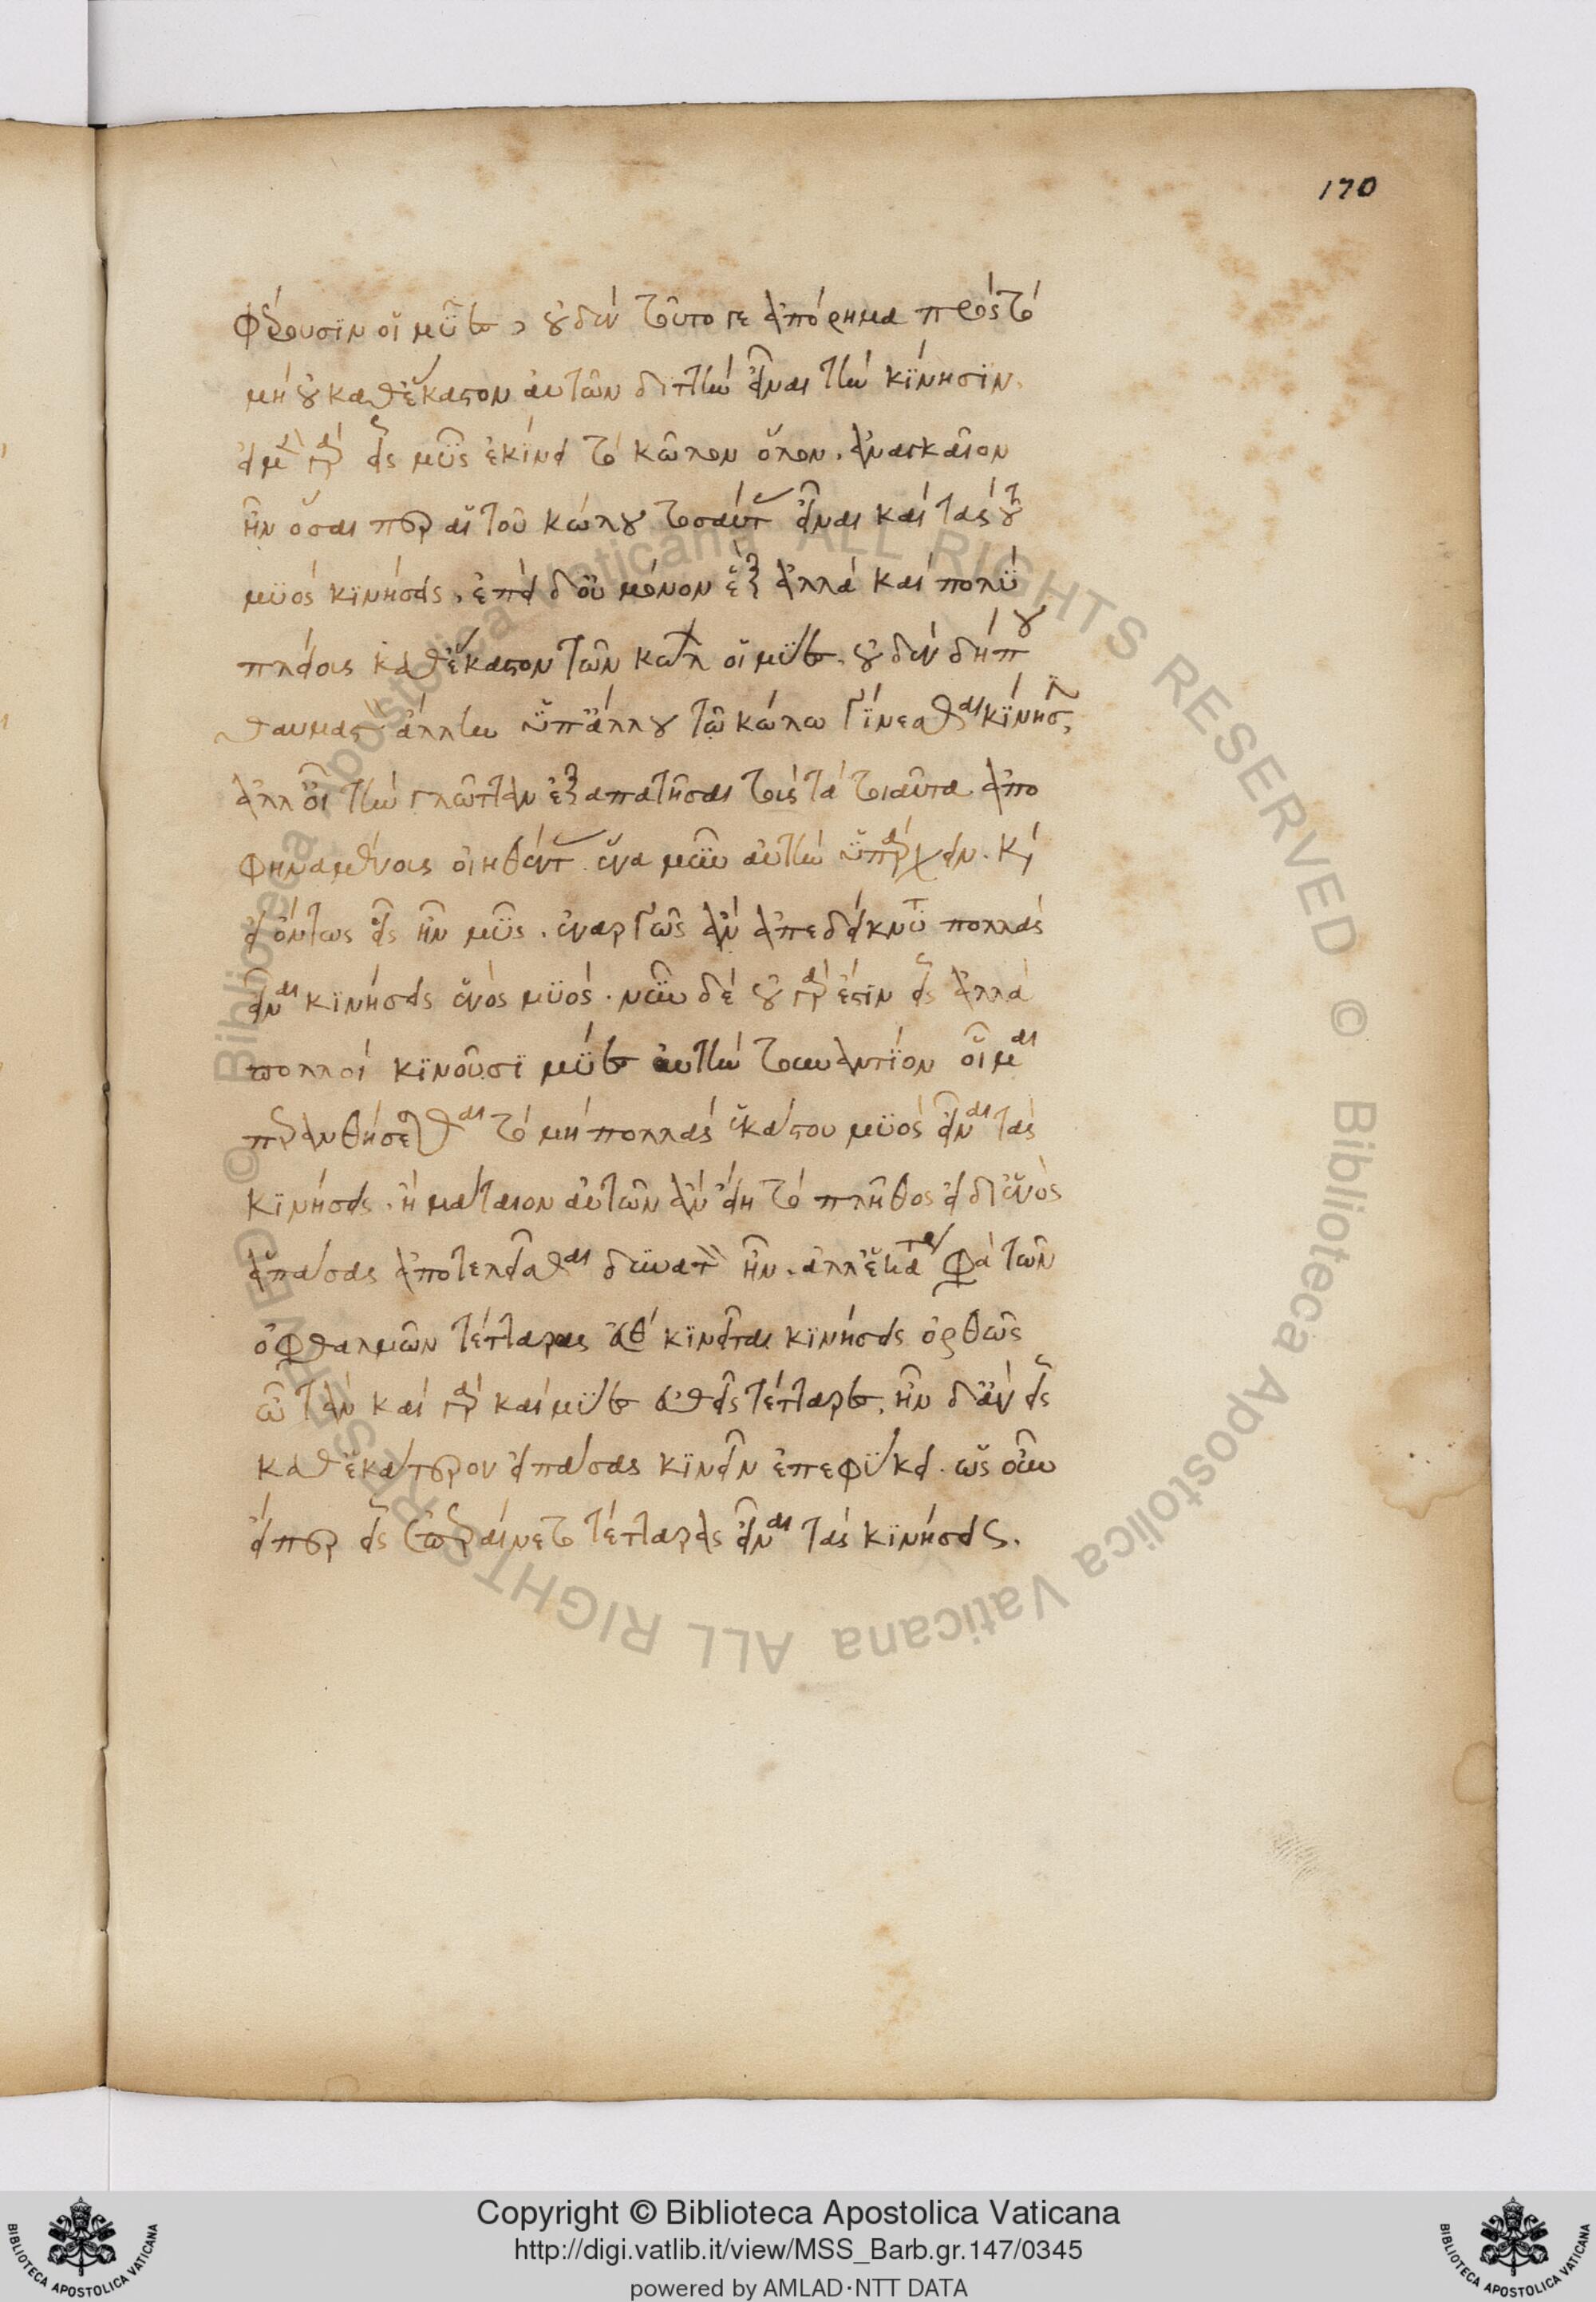 170
φέρουσιν οἱ μῦες, οὐδὲν τοῦτό γε ἀπόρημα πρὸς τὸ
μὴ οὐ καθ' ἕκαστον αὐτῶν διττὴν εἶναι τὴν κίνησιν.
εἰ μὲν γὰρ εἷς μῦς ἐκίνει τὸ κῶλον ὅλον, ἀναγκαῖον
ἦν ὅσαι περ αἱ τοῦ κώλου τοσαύτας εἶναι καὶ τὰς τοῦ
μυὸς κινήσεις. ἐπεὶ δ' οὐ μόνον ἓξ ἀλλὰ καὶ πολὺ
πλείους καθ' ἕκαστον τῶν κώλων οἱ μύες, οὐδὲν δήπου
θαυμαστὸν ἄλλην ὑπ' ἄλλου τῷ κώλῳ γίνεσθαι κίνησιν,
ἀλλ' ἔοικε τὴν γλῶτταν ἐξαπατῆσαι τοὺς τὰ τοιαῦτα ἀπο
φηναμένους οἰηθέντας ἕνα μῦν αὐτὴν ὑπάρχειν. καὶ
εἰ ὄντως εἷς ἦν μῦς, ἐναργῶς ἂν ἀπεδείκνυτο πολλὰς
εἶναι κινήσεις ἑνὸς μυός. νῦν δὲ οὐ γάρ ἐστιν εἷς ἀλλὰ
πολλοὶ κινοῦσι μύες αὐτὴν τοὐναντίον οἶμαι
περανθήσεσθαι τὸ μὴ πολλὰς ἑκάστου μυὸς εἶναι τὰς
κινήσεις. ἢ μάταιον αὐτῶν ἂν εἴη τὸ πλῆθος εἰ δι' ἑνὸς
ἁπάσας ἀποτελεῖσθαι δυνατὸν ἦν. ἀλλ' ἑκάτερα τῶν
ὀφθαλμῶν τέτταρας εὐθείας κινεῖται κινήσεις ὀρθῶς
ὦ τάν καὶ γὰρ καὶ μύες εὐθεῖς τέτταρες, ἦν δ' ἂν εἷς
καθ' ἑκάτερον εἰ πάσας κινεῖν ἐπεφύκει. ὡς οὖν
εἴπερ εἷς ἐπεραίνετο τέτταρας εἶναι τὰς κινήσεις.
Biblioteca Apostolica Vaticana ALL RIGHTS RESERVED © Biblioteca Apostolica Vaticana ALL RIGHTS RESERVED ©
Copyright © Biblioteca Apostolica Vaticana
http://digi.vatlib.it/view/MSS_Barb.gr.147/0345
powered by AMLAD·NTT DATA
BIBLIOTECA APOSTOLICA VATICANA
BIBLIOTECA APOSTOLICA VATICANA